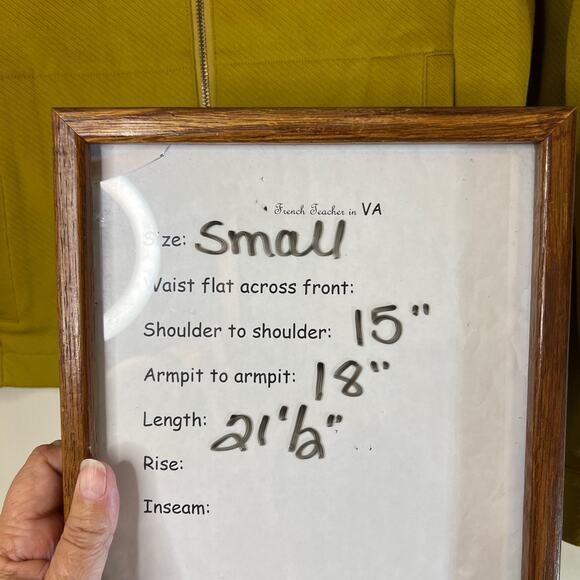 French Teacher in VA
Size: Small
Waist flat across front:
Shoulder to shoulder: 15"
Armpit to armpit: 18"
Length: 21 1/2"
Rise:
Inseam: